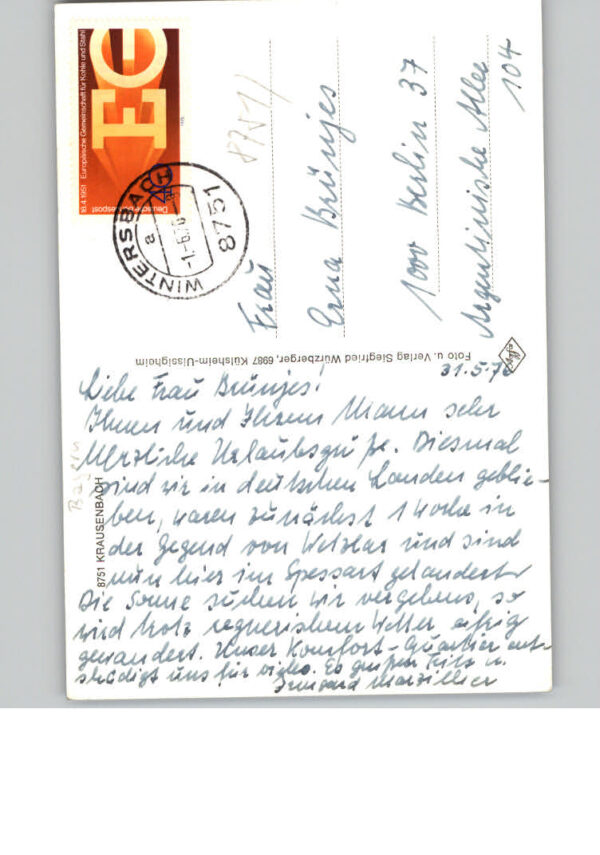 16.4.1951 Europäische Gemeinschaft für Kohle und Stahl
EG
Deutsche Bundespost
WINTERSBACH
a
-1.-6.76
8751
8751
Frau
Erna Brünjes
1000 Berlin 37
Argentinische Allee
104
Foto u. Verlag Siegfried Würzberger, 6987 Külsheim-Uissigheim
Agfa
8751 KRAUSENBACH
Bayern
31.5.76
Liebe Frau Brünjes!
Ihnen und Ihrem Mann sehr
herzliche Urlaubsgrüße. Diesmal
sind wir in deutschen Landen geblie-
ben, waren zunächst 1 Woche in
der Gegend von Wetzlar und sind
nun hier im Spessart gelandet.
Die Sonne suchen wir vergebens, so
wird trotz regnerischem Wetter eifrig
gewandert. Unser Komfort-Quartier ent-
schädigt uns für vieles. Es grüßen Fritz u.
Irmgard